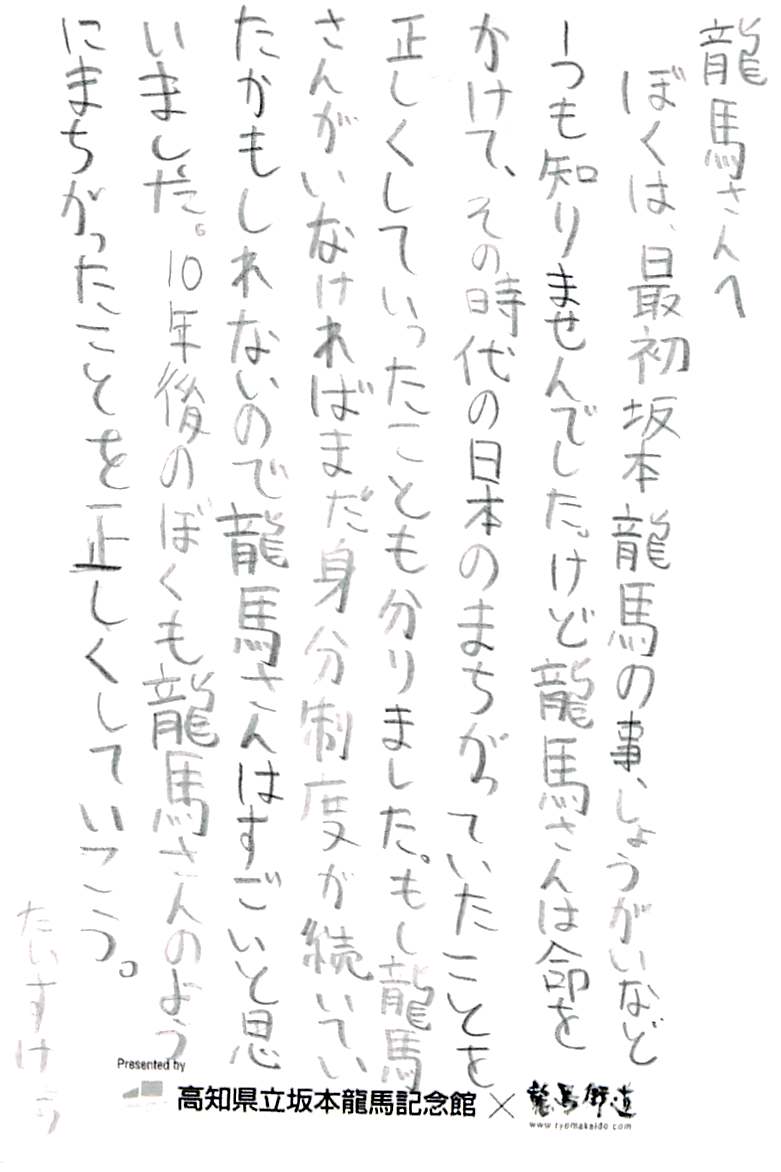 龍馬さんへ
ぼくは、最初坂本龍馬の事、しょうがいなど
一つも知りませんでした。けど龍馬さんは命を
かけて、その時代の日本のまちがっていたことを
正しくしていったことも分りました。もし龍馬
さんがいなければまだ身分制度が続いてい
たかもしれないので龍馬さんはすごいと思
いました。10年後のぼくも龍馬さんのよう
にまちがったことを正しくしていこう。
たいすけ
Presented by
高知県立坂本龍馬記念館×龍馬街道
www.ryomakaido.com